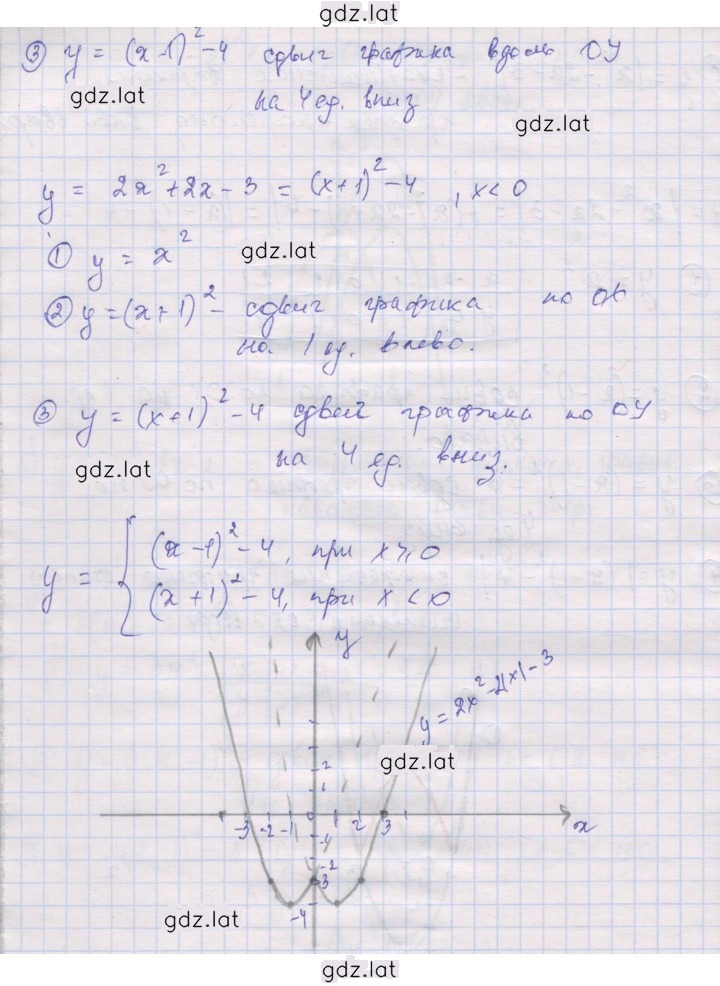 gdz.lat
③ y = (x-1)² - 4 сдвиг графика вдоль OY
gdz.lat
на 4 ед. вниз
gdz.lat
y = 2x² + 2x - 3 = (x+1)² - 4 , x < 0
① y = x²
gdz.lat
② y = (x+1)² - сдвиг графика по OX
на 1 ед. влево.
③ y = (x+1)² - 4 сдвиг графика по OY
gdz.lat
на 4 ед. вниз.
y = { (x-1)² - 4, при x ⩾ 0
(x+1)² - 4, при x < 0
y
y = 2x² - 2|x| - 3
gdz.lat
2
1
-3 -2 -1 0 1 2 3 x
-1
-2
-3
-4
gdz.lat
gdz.lat